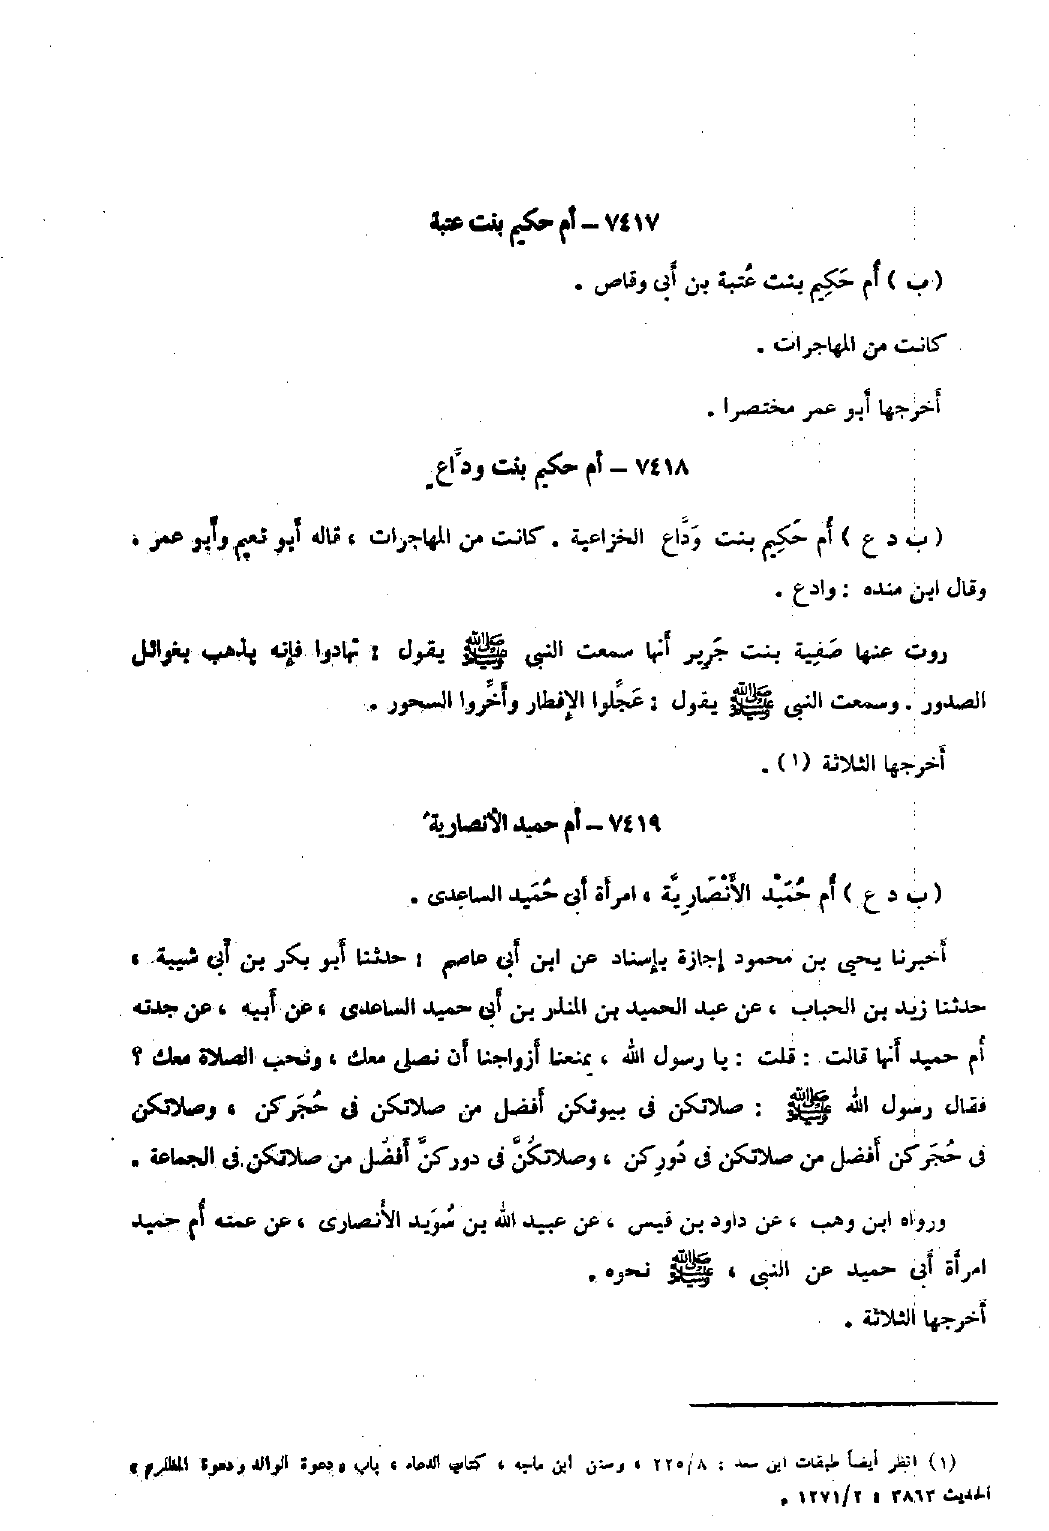 ٧٤١٧ – أم حكيم بنت عتبة
(ب) أُم حَكِيم بنت عُتبة بن أَبى وقاص .
كانت من المهاجرات .
أَخرجها أَبو عمر مختصرا .
٧٤١٨ – أم حكيم بنت ودَّاع
(ب د ع) أُم حَكِيم بنت وَدَّاع الخزاعية . كانت من المهاجرات ، قاله أَبو نعيم وأَبو عمر ،
وقال ابن منده : وادع .
روت عنها صَفِية بنت جَرِير أَنها سمعت النبى ﷺ يقول : تهادوا فإنه يذهب بغوائل
الصدور . وسمعت النبى ﷺ يقول : عَجِّلوا الإفطار وأَخِّروا السحور .
أَخرجها الثلاثة (١) .
٧٤١٩ – أم حميد الأنصارية
(ب د ع) أُم حُمَيْد الأَنْصَارِيَّة ، امرأَة أَبى حُمَيد الساعِدى .
أَخبرنا يحيى بن محمود إجازة بإسناد عن ابن أَبى عاصم : حدثنا أَبو بكر بن أَبى شيبة ،
حدثنا زيد بن الحباب ، عن عبد الحميد بن المنذر بن أَبى حميد الساعدى ، عن أَبيه ، عن جدته
أُم حميد أَنها قالت : قلت : يا رسول الله ، يمنعنا أَزواجنا أَن نصلى معك ، ونحب الصلاة معك ؟
فقال رسول الله ﷺ : صلاتكن فى بيوتكن أَفضل من صلاتكن فى حُجَركن ، وصلاتكن
فى حُجَركن أَفضل من صلاتكن فى دُورِكن ، وصلاتكُنَّ فى دوركنَّ أَفضَل من صلاتكن فى الجماعة .
ورواه ابن وهب ، عن داود بن قيس ، عن عبيد الله بن سُوَيد الأَنصارى ، عن عمته أُم حميد
امرأَة أَبى حميد عن النبى ، ﷺ نحوه .
أَخرجها الثلاثة .
(١) انظر أيضاً طبقات ابن سعد : ٢٢٥/٨ ، وسنن ابن ماجه ، كتاب الدعاء ، باب « دعوة الوالد ودعوة المظلوم »
الحديث ٣٨٦٣ : ١٢٧١/٢ .